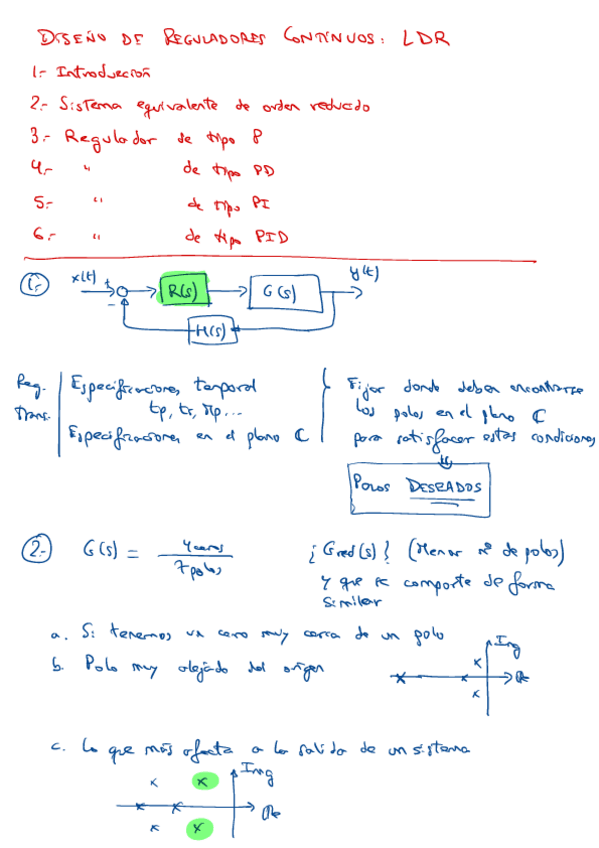 DISEÑO DE REGULADORES CONTÍNUOS: LDR
1.- Introducción
2.- Sistema equivalente de orden reducido
3.- Regulador de tipo P
4.- " de tipo PD
5.- " de tipo PI
6.- " de tipo PID
1.-
x(t) + - R(s) G(s) y(t)
H(s)
Reg. Trans.
Especificaciones temporal
tp, ts, Mp...
Especificaciones en el plano ℂ
Fijar donde deben encontrarse
los polos en el plano ℂ
para satisfacer estas condiciones
POLOS DESEADOS
2.- G(s) = 4 ceros / 7 polos
¿Gred(s)? (Menor nº de polos)
Y que se comporte de forma
similar
a. Si tenemos un cero muy cerca de un polo
b. Polo muy alejado del origen
Img
Re
c. Lo que más afecta a la salida de un sistema
Img
Re